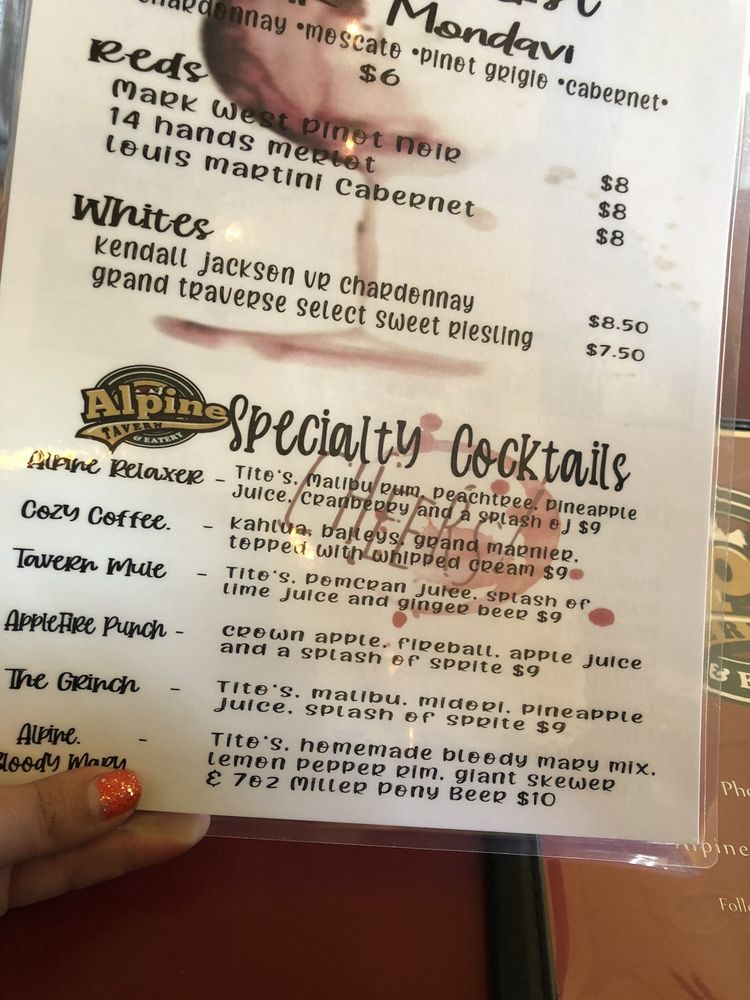 Mondavi
chardonnay •moscato •pinot grigio •cabernet•
$6
Reds
Mark West pinot noir $8
14 hands merlot $8
Louis Martini Cabernet $8
Whites
Kendall Jackson VR chardonnay $8.50
grand traverse select sweet riesling $7.50
Alpine
TAVERN
& EATERY
Specialty Cocktails
CHEERS!
Alpine Relaxer - Tito's, Malibu Rum, peachtree, pineapple
juice, cranberry and a splash OJ $9
Cozy Coffee. - Kahlua, baileys, grand marnier,
topped with whipped cream $9
Tavern Mule - Tito's, pomcran juice, splash of
lime juice and ginger beer $9
AppleFire Punch - crown apple, fireball, apple juice
and a splash of sprite $9
The Grinch - Tito's, malibu, midori, pineapple
juice, splash of sprite $9
Alpine. - Tito's, homemade bloody mary mix,
Bloody Mary lemon pepper rim, giant skewer
& 7oz Miller Pony Beer $10
& E
Pho
Alpine
Follo